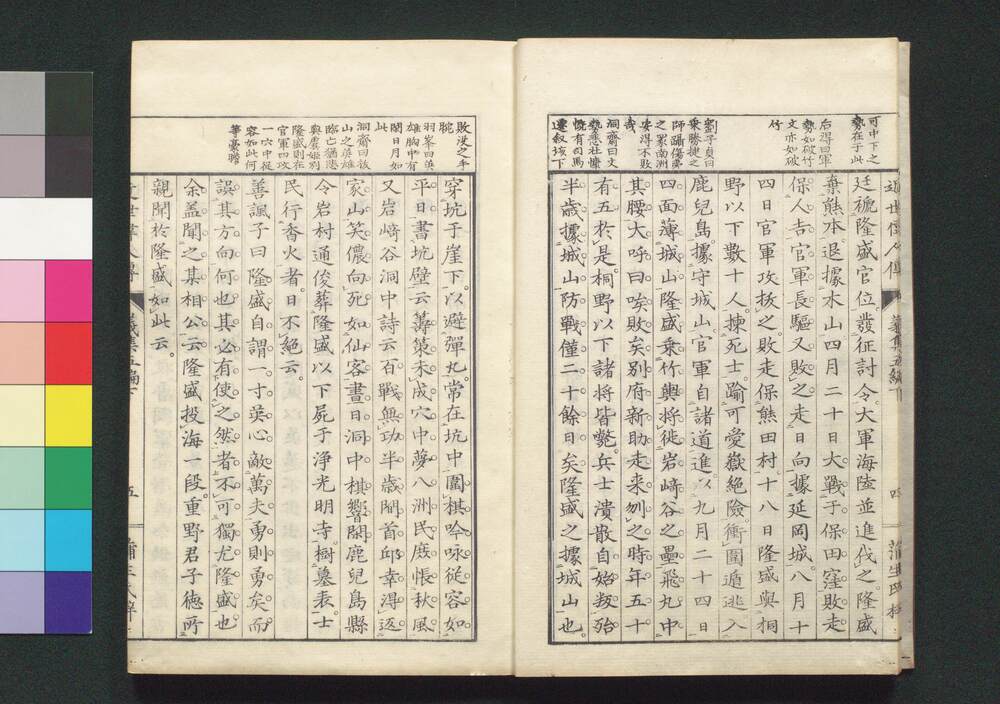 可中下之
勢在于此
后得曰軍
勢如破竹
文亦如破
竹
劉子貞曰
乗勝捷之
師蹋傷
之眾南洲
安得不敗
奇
洞齋曰文
勢悲壮慷
慨有司馬
遷叙垓下
廷褫隆盛官位。發征討令。大軍海陸並進伐之隆盛
棄熊本。退據木山四月二十日大戰于保田窪敗走
保人吉官軍長驅又敗之。走日向據延岡城。八月十
四日官軍攻拔之。敗走保熊田村。十八日隆盛與桐
野以下數十人。揀死士。踰可愛嶽絕險。衝圍遁逃入
鹿兒島據守城山官軍自諸道進。以九月二十四日
四面薄城山隆盛乗竹輿將徙岩﨑谷之壘飛丸中
其腰大呼曰唉敗矣別府新助走来刎之時年五十
有五於是桐野以下諸將皆斃。兵士潰散自始叛殆
半歲據城山防戰僅二十餘日矣隆盛之據城山也。
敗沒之手
腕
羽峯曰英
雄胸中有
閑日月如
此
洞齋曰拔
山之英雄
臨亡猶悲
與虞姬別
隆盛則在
官軍四攻
一穴中從
容如此何
等豪膽
穿坑于崖下。以避彈丸。常在坑中。圍棋吟咏從容如
平日書坑壁云籌策未成穴中夢八洲民庶悵秋風
又岩﨑谷洞中詩云百戰無功半歲間首邱幸得返
家山笑儂向死如仙客晝日洞中棋響閑鹿兒島縣
令岩村通俊葬隆盛以下屍于淨光明寺。樹墓表。士
民行香火者。日不絕云。
善諷子曰隆盛自謂。一寸英心敵萬夫勇則勇矣而
誤其方向何也其必有使之然者不可獨尤隆盛也
余盖聞之其相公云隆盛投海一段。重野君子德所
親聞於隆盛如此云。
五